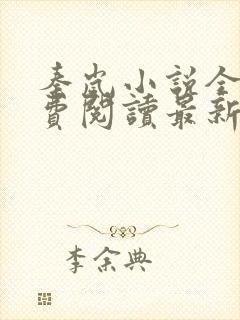 秦嵐小說全
費閱讀最新
李余典